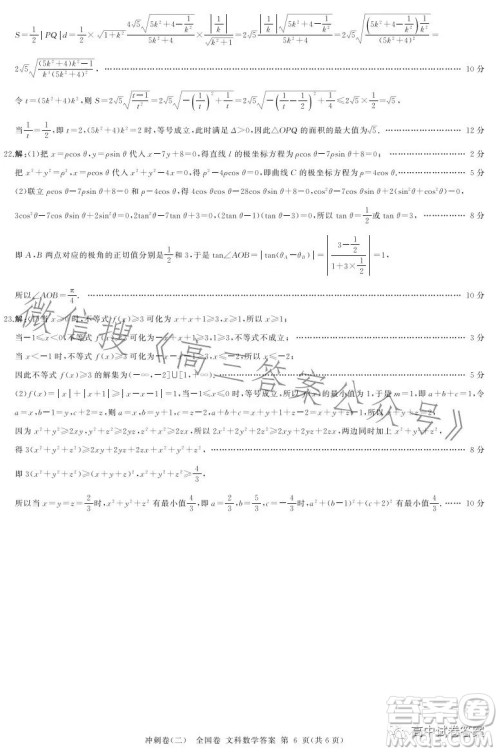 S=\frac{1}{2}|PQ|d=\frac{1}{2}×\sqrt{1+k²}\frac{4\sqrt{5}\sqrt{5k²+4-\frac{1}{k²}}}{5k²+4}×\frac{|\frac{1}{k}|}{\sqrt{k²+1}}=2\sqrt{5}\frac{\sqrt{5k²+4-\frac{1}{k²}}|\frac{1}{k}|}{5k²+4}=2\sqrt{5}\sqrt{\frac{(5k²+4-\frac{1}{k²})\frac{1}{k²}}{(5k²+4)²}}=
2\sqrt{5}\sqrt{\frac{(5k²+4)k²-1}{k⁴(5k²+4)²}}. 10分
令t=(5k²+4)k²,则S=2\sqrt{5}\sqrt{\frac{t-1}{t²}}=2\sqrt{5}\sqrt{-(\frac{1}{t})²+\frac{1}{t}}=2\sqrt{5}\sqrt{-(\frac{1}{t}-\frac{1}{2})²+\frac{1}{4}}≤2\sqrt{5}×\frac{1}{2}=\sqrt{5},
当\frac{1}{t}=\frac{1}{2},即t=2,(5k²+4)k²=2时,等号成立,此时满足Δ>0,因此△OPQ的面积的最大值为\sqrt{5}. 12分
22.解:(1)把x=ρcos θ,y=ρsin θ代入x-7y+8=0,得直线l的极坐标方程为ρcos θ-7ρsin θ+8=0; 2分
把x²+y²=ρ²,x=ρcos θ代入x²+y²-4x=0,得ρ²-4ρcos θ=0,即曲线C的极坐标方程为ρ=4cos θ. 5分
(2)联立ρcos θ-7ρsin θ+8=0和ρ=4cos θ,得4cos²θ-28sin θcos θ+8=0,cos²θ-7sin θcos θ+2(sin²θ+cos²θ)=0,
3cos²θ-7sin θcos θ+2sin²θ=0,2tan²θ-7tan θ+3=0,(2tan θ-1)(tan θ-3)=0,所以tan θ=\frac{1}{2}或tan θ=3, 8分
即A,B两点对应的极角的正切值分别是\frac{1}{2}和3,于是tan∠AOB=|tan(θ_A-θ_B)|=|\frac{3-\frac{1}{2}}{1+3×\frac{1}{2}}|=1,
所以∠AOB=\frac{π}{4}. 10分
23.解:(1)当x≥0时,不等式f(x)≥3可化为x+x+1≥3,x≥1,所以x≥1;
当-1≤x<0时,不等式f(x)≥3可化为-x+x+1≥3,1≥3,不等式不成立; 3分
当x<-1时,不等式f(x)≥3可化为-x-x-1≥3,x≤-2,所以x≤-2.
因此不等式f(x)≥3的解集为(-∞,-2]∪[1,+∞). 5分
(2)f(x)=|x|+|x+1|≥|x-(x+1)|=1,当-1≤x≤0时等号成立,所以f(x)的最小值为1,于是m=1,即a+b+c=1,令
a=x,b-1=y,c+2=z,则a=x,b=y+1,c=z-2,代入a+b+c=1,得x+y+z=2.
因为x²+y²≥2xy,y²+z²≥2yz,z²+x²≥2zx,所以2x²+2y²+2z²≥2xy+2yz+2zx,两边同时加上x²+y²+z²,
得3(x²+y²+z²)≥x²+y²+z²+2xy+2yz+2zx, 8分
即3(x²+y²+z²)≥(x+y+z)²,x²+y²+z²≥\frac{4}{3},
所以当x=y=z=\frac{2}{3}时,x²+y²+z²有最小值\frac{4}{3},即a=\frac{2}{3},b=\frac{5}{3},c=-\frac{4}{3}时,a²+(b-1)²+(c+2)²有最小值\frac{4}{3}. 10分
微信搜《高三答案公众号》
冲刺卷(二) 全国卷 文科数学答案 第6页(共6页)
高中试卷答案